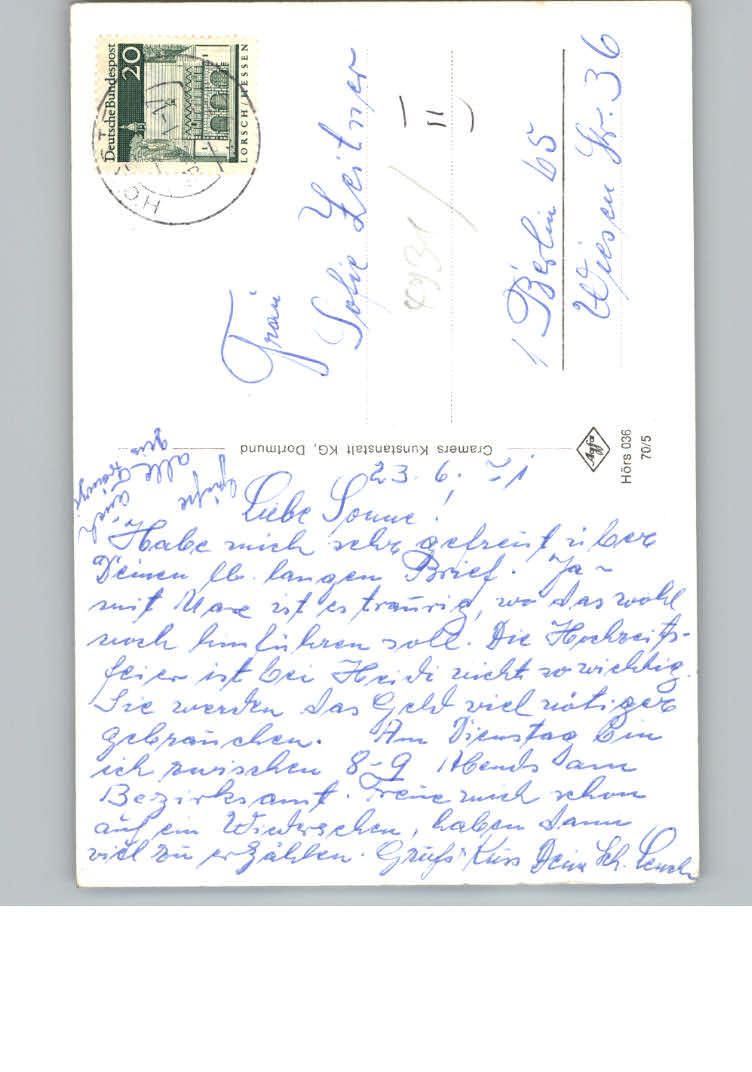 Deutsche Bundespost
20
LORSCH/HESSEN
Frau
Sofie Zeitner
II
1 Berlin 65
Wiesen Str. 36
Cramers Kunstanstalt KG, Dortmund
Agfa
Hörs 036
70/5
23. 6. 71
Liebe Sonne!
Habe mich sehr gefreut über
Deinen lb. langen Brief. Ja -
mit Maxe ist es traurig, wo das wohl
noch hinführen soll. Die Hochzeits-
feier ist bei Heidi nicht so wichtig.
Sie werden das Geld viel nötiger
gebrauchen. Am Dienstag bin
ich zwischen 8-9 Abends am
Bezirksamt. Freue mich schon
auf ein Wiedersehen, haben dann
viel zu erzählen. Gruß Kuss Deine Sch.
Grüße
alle
auch